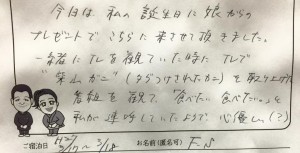 今日は、私の誕生日に娘からの
プレゼントでこちらに来させて頂きました。
一緒にTVを観ていた時に TVで
"柴山ガニ"(タグつけされたカニ)を取り上げた
番組を観て、"食べたい食べたい。"と
私が連呼していたようで、心優しい(?)
ご宿泊日 H27 2/17〜2/18 お名前(匿名可) F.S